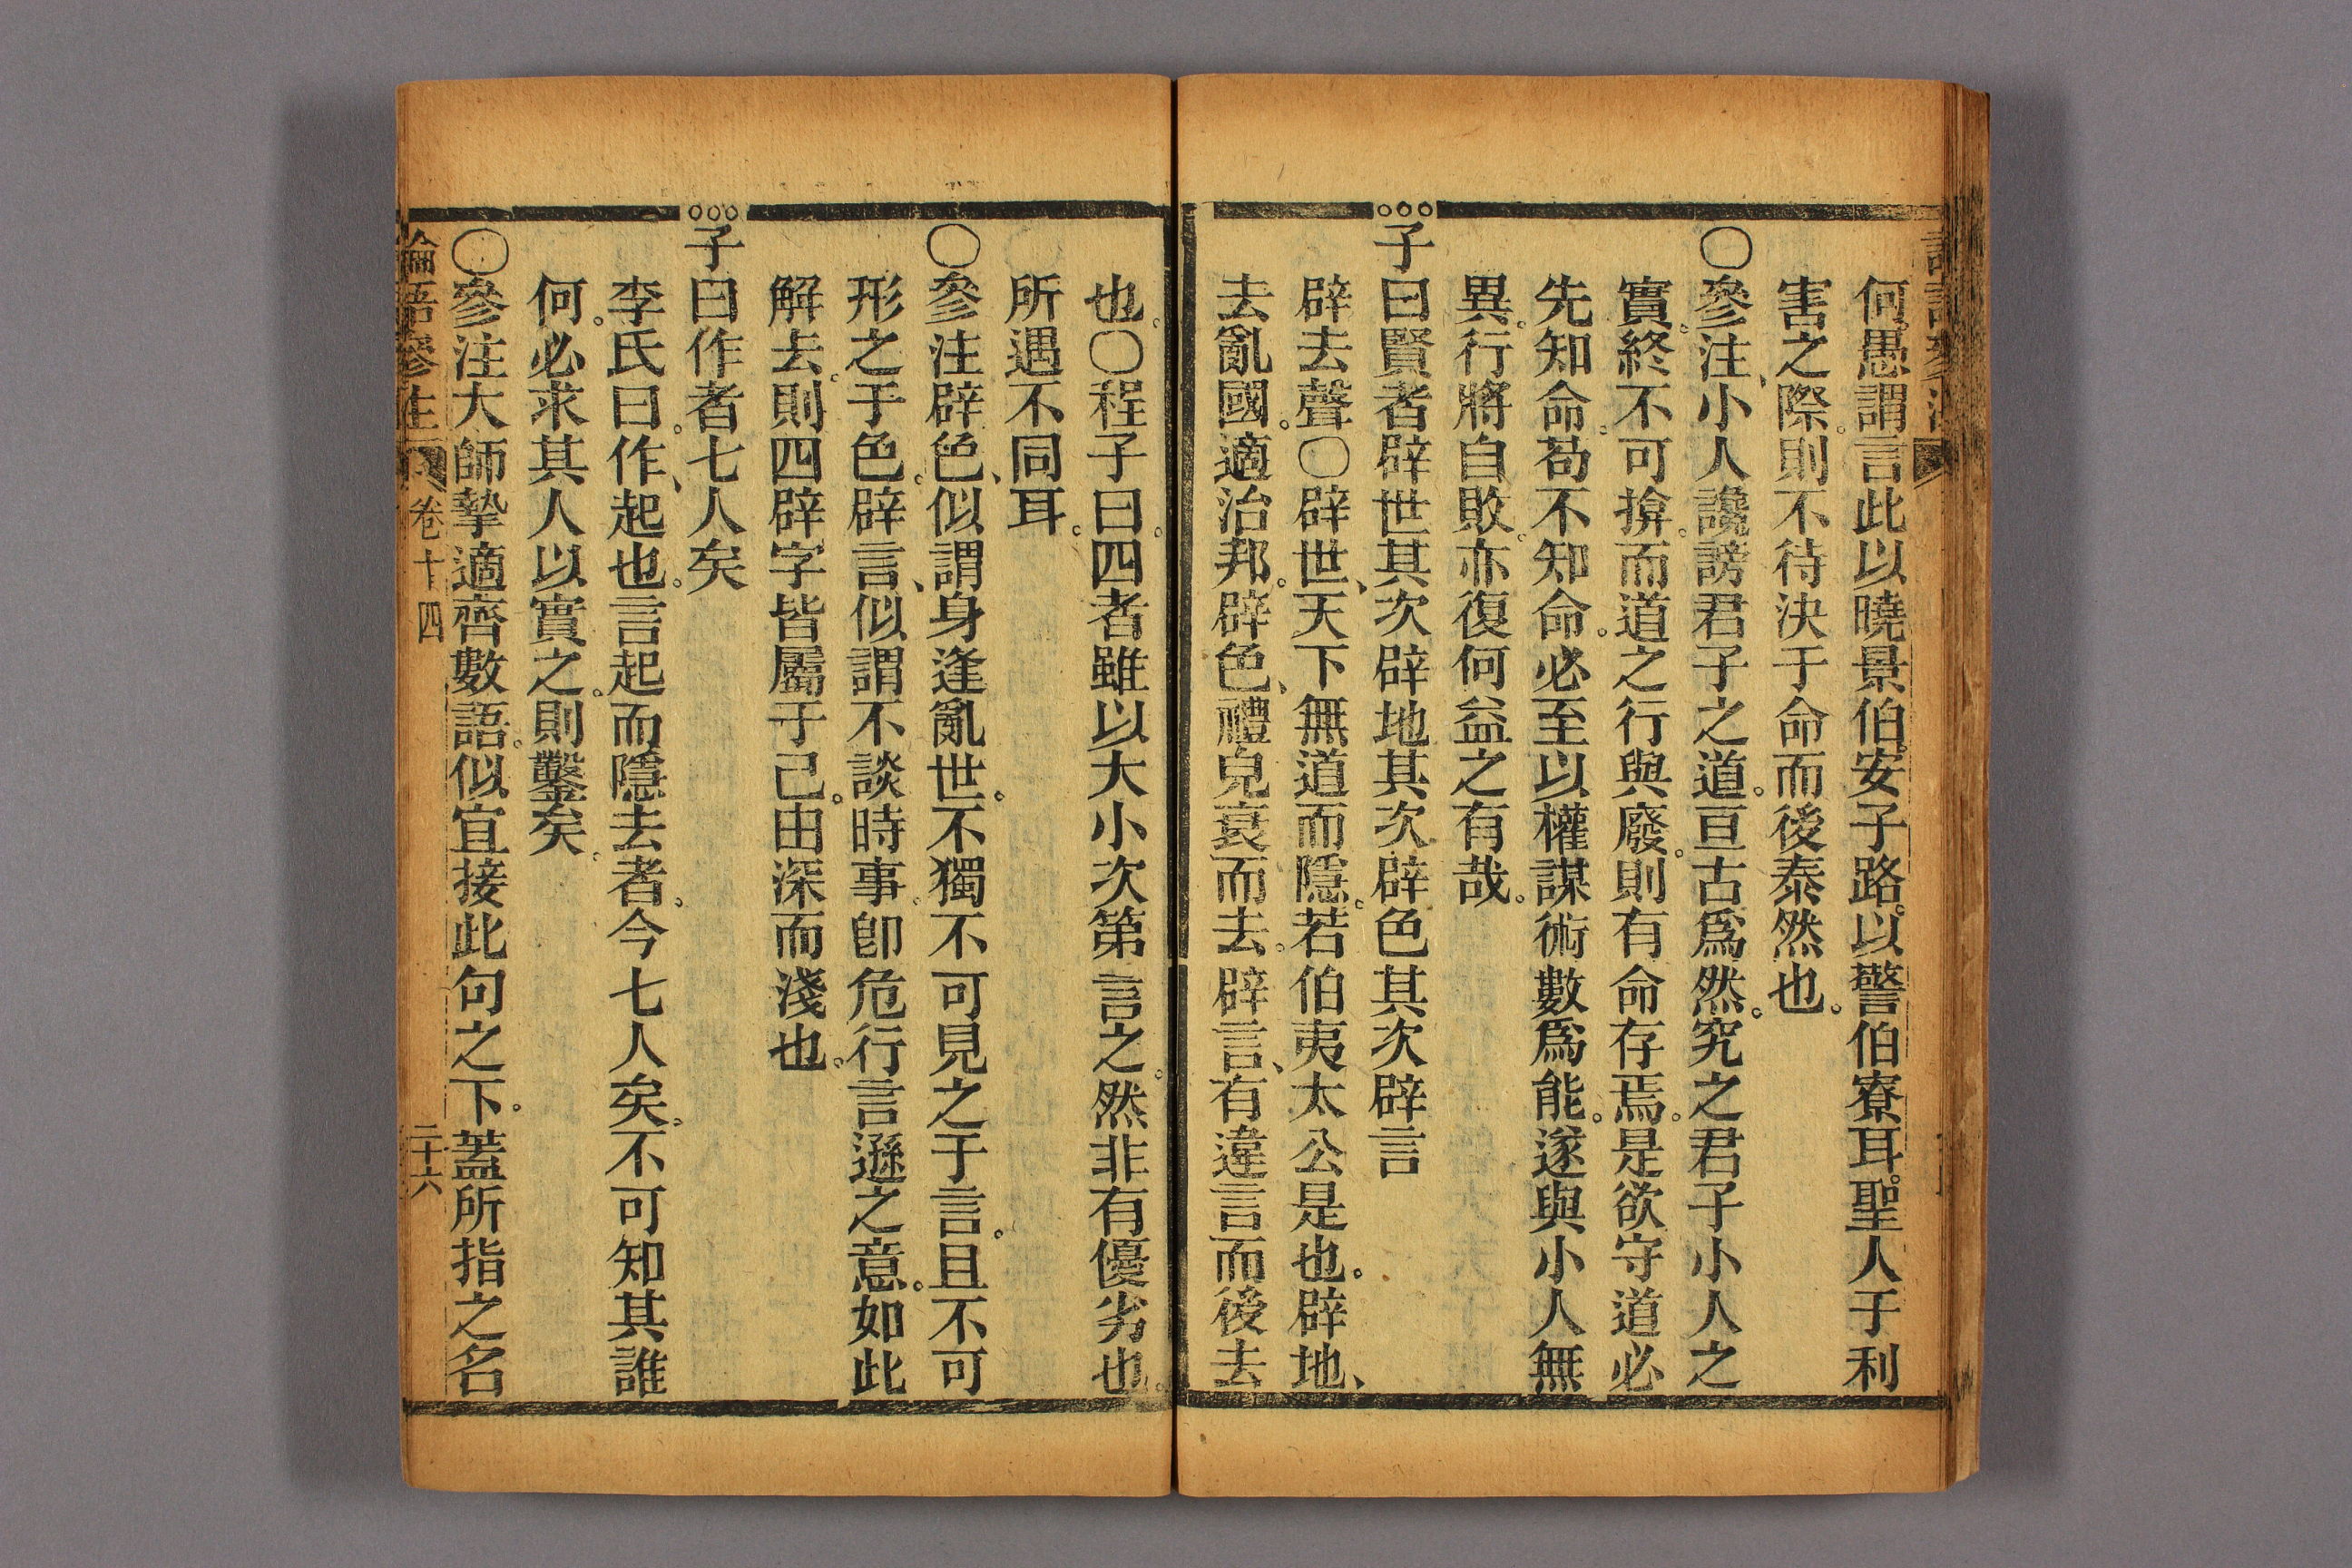 何。愚謂言此以曉景伯。安子路。以警伯寮耳。聖人于利
害之際。則不待決于命而後泰然也。
〇參注、小人讒謗君子之道。亘古爲然。究之君子小人之
實。終不可揜。而道之行與廢。則有命存焉。是欲守道必
先知命。苟不知命。必至以權謀術數爲能。遂與小人無
異。行將自敗。亦復何益之有哉。
子曰賢者辟世其次辟地其次辟色其次辟言
辟去聲〇辟世、天下無道而隱。若伯夷太公是也。辟地、
去亂國。適治邦。辟色、禮皃衰而去。辟言、有違言而後去
也。〇程子曰。四者雖以大小次第言之。然非有優劣也。
所遇不同耳。
〇參注辟色、似謂身逢亂世。不獨不可見之于言。且不可
形之于色。辟言、似謂不談時事。卽危行言遜之意。如此
解去。則四辟字皆屬于己。由深而淺也。
子曰作者七人矣
李氏曰。作、起也。言起而隱去者。今七人矣。不可知其誰
何。必求其人以實之。則鑿矣。
〇參注大師摯適齊數語。似宜接此句之下。蓋所指之名
論語參注 卷十四 二十六